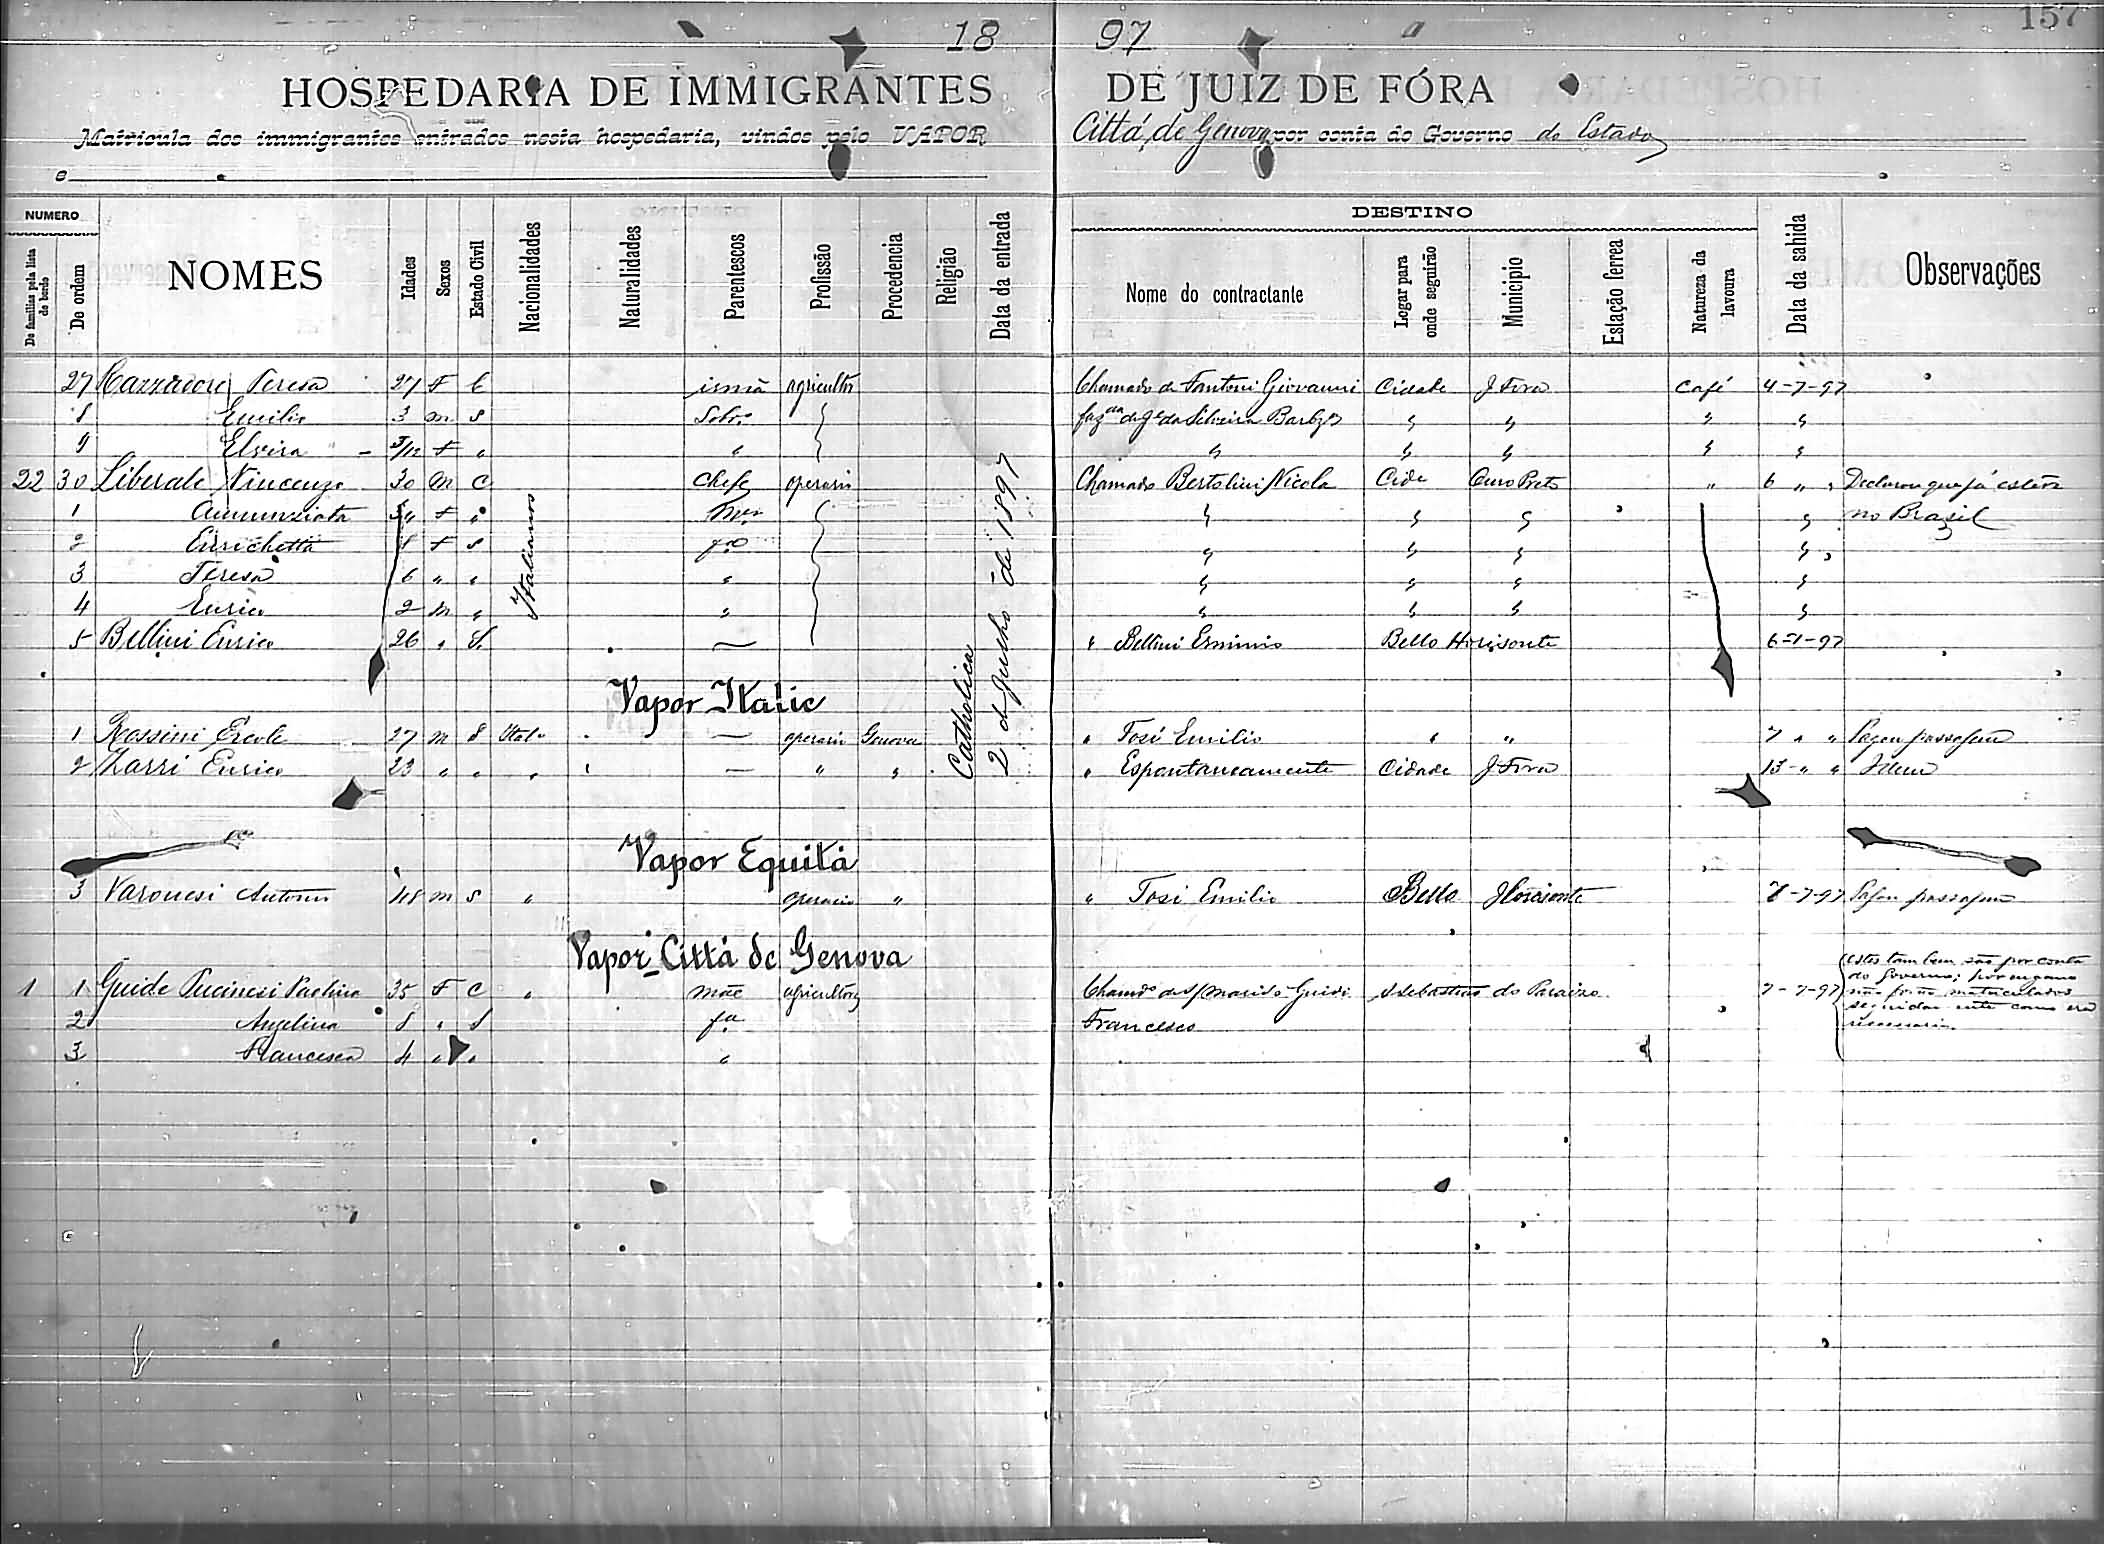 157
18 97
HOSPEDARIA DE IMMIGRANTES DE JUIZ DE FÓRA
Matricula dos immigrantes entrados nesta hospedaria, vindos pelo VAPOR Cittá de Genova por conta do Governo do Estado
e
NUMERO
De familias pela lista de bordo
De ordem
NOMES
Idades
Sexos
Estado Civil
Nacionalidades
Naturalidades
Parentescos
Profissão
Procedencia
Religião
Data da entrada
DESTINO
Nome do contractante
Logar para onde seguirão
Municipio
Estação ferrea
Natureza da lavoura
Data da sahida
Observações
27 Teresa 27 F C irmã agricultor Chamado de Fantoni Giovanni Cidade J. Fora Café 4-7-97
8 Emilio 3 m S Sobr. da Silveira
9 Elvira F " "
22 30 Liberale Vincenzo 30 m C Chefe operario Chamado Bertolini Nicola Cide Ouro Preto " 6 " " Declarou que já esteve
1 Annunziata F " Mer no Brazil
2 Enrichetta 8 F S
3 Teresa 6 " " "
4 Enrico 2 m " "
5 Bellini Enrico 26 " S. — " Bellini Erminio Bello Horisonte 6-7-97
Italianos
Catholica
2 de Julho de 1897
Vapor Italie
1 Rossini Ercole 27 m S — operario Genova " Tosi Emilio " " 7 " " Pagou passagem
2 Zarri Enrico 23 " " " — " " " Espontaneamente Cidade J. Fora 13 " " Idem
Vapor Equitá
3 Varonesi Antonio 48 m S " operario " " Tosi Emilio Bello Horisonte 7-7-97 Pagou passagem
Vapor Cittá de Genova
1 1 Guide Pucinesi Paolina 35 F C " mãe agricultora Chamdo de s/ marido Guidi S Sebastião do Paraizo 7-7-97
2 Angelina 8 " S fa Francesco
3 Francesca 4 " " "
Estes tambem são por conta
do Governo; por engano
não forão matriculados